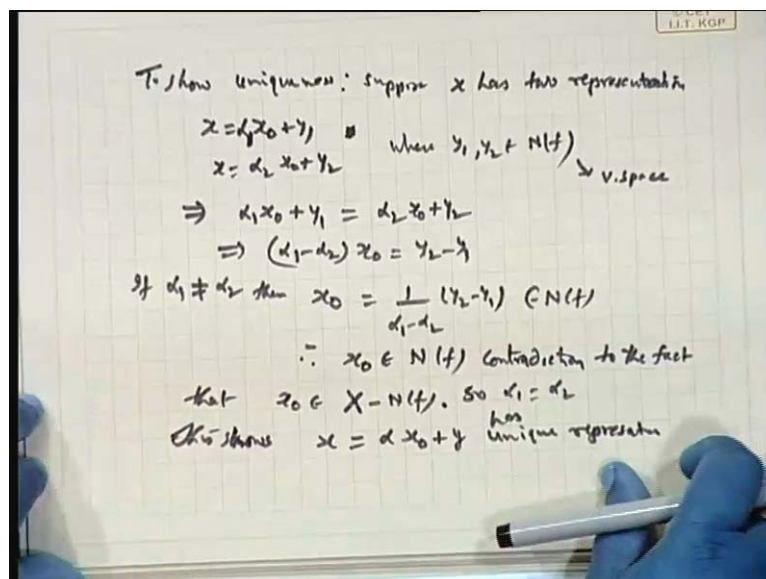 © CET
I.I.T. KGP
To show uniqueness: suppose x has two representation
x = α₁x₀ + y₁
x = α₂ x₀ + y₂
where y₁, y₂ ∈ N(f)
↘ v. space
⇒ α₁x₀ + y₁ = α₂ x₀ + y₂
⇒ (α₁-α₂) x₀ = y₂ - y₁
If α₁ ≠ α₂ then x₀ = 1/(α₁-α₂) (y₂-y₁) ∈ N(f)
∴ x₀ ∈ N(f) contradiction to the fact
that x₀ ∈ X - N(f). So α₁ = α₂
This shows x = α x₀ + y has unique representation